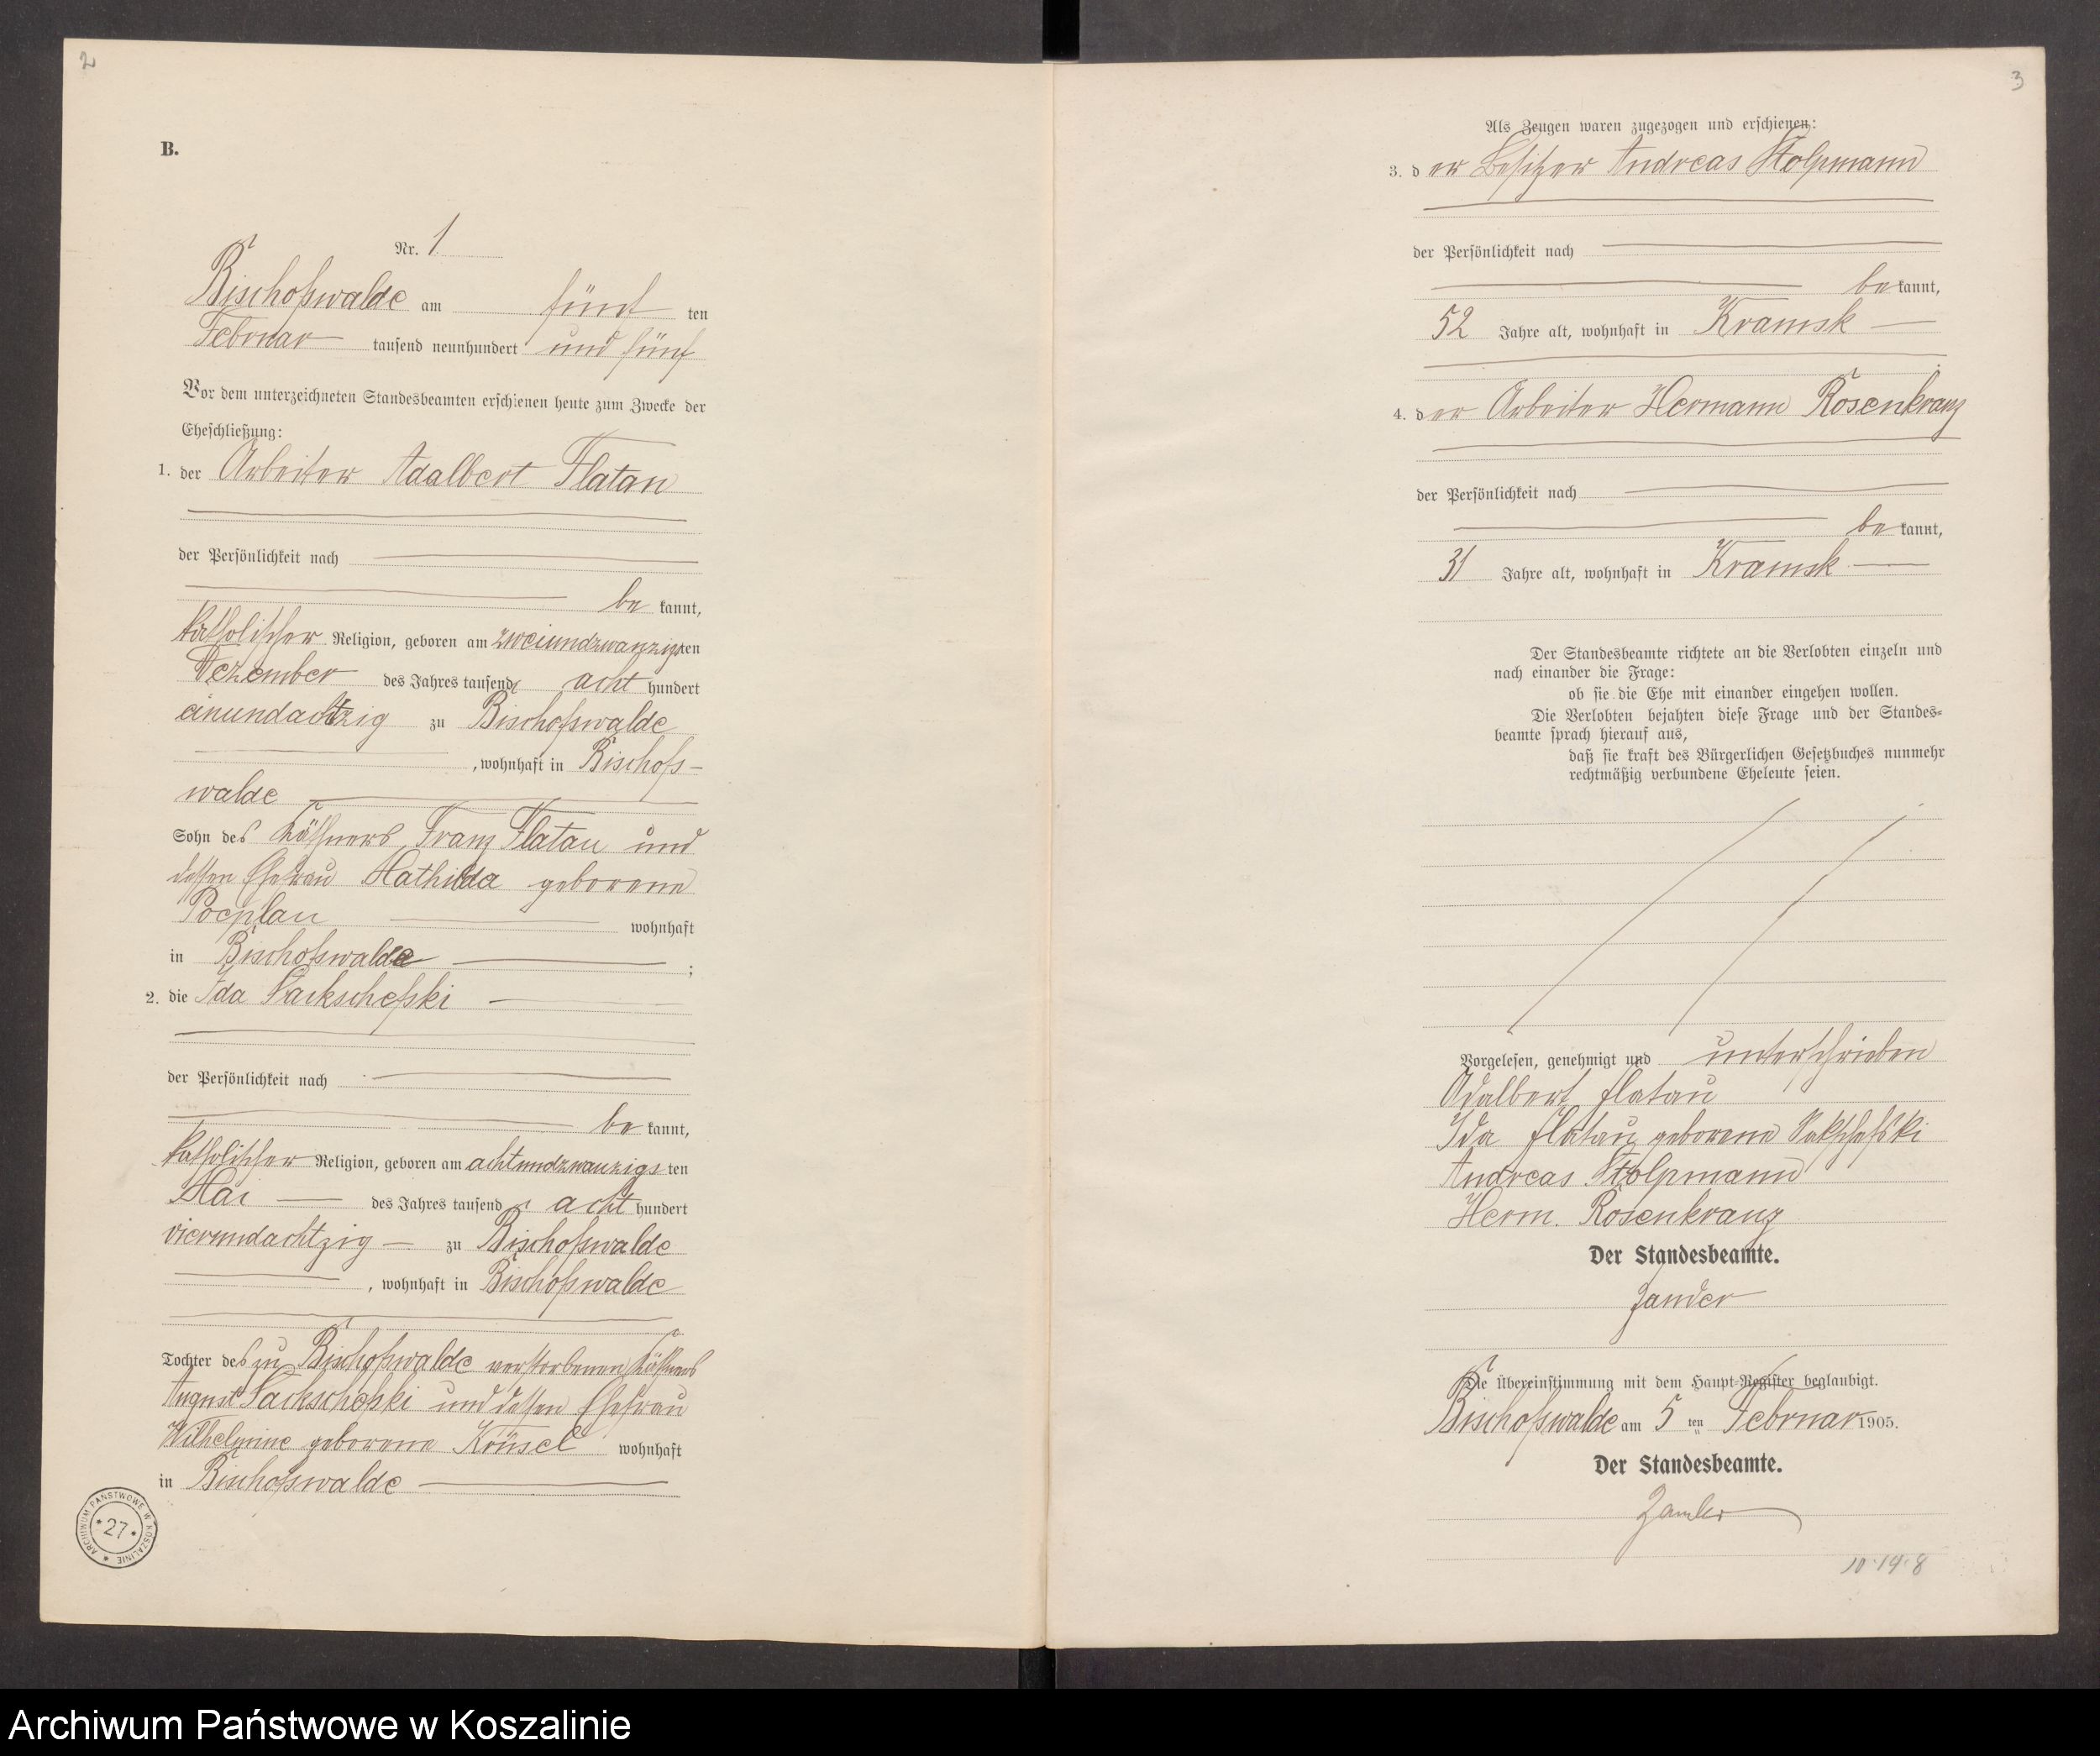 2
B.
Nr. 1
Bischofswalde am fünf ten
Februar tausend neunhundert und fünf
Vor dem unterzeichneten Standesbeamten erschienen heute zum Zwecke der
Eheschließung:
1. der Arbeiter Adalbert Flatau
der Persönlichkeit nach
be kannt,
katholischer Religion, geboren am zweiundzwanzigsten
Dezember des Jahres tausend acht hundert
einundachtzig zu Bischofswalde
, wohnhaft in Bischofs-
walde
Sohn des Käthners Franz Flatau und
dessen Ehefrau Mathilda geborene
wohnhaft
in Bischofswalde ;
2. die Ida Sackschefski
der Persönlichkeit nach
be kannt,
katholischer Religion, geboren am achtundzwanzigs ten
Mai des Jahres tausend acht hundert
vierundachtzig zu Bischofswalde
, wohnhaft in Bischofswalde
Tochter des zu Bischofswalde verstorbenen Käthners
August Sackschefski und dessen Ehefrau
Wilhelmine geborene wohnhaft
in Bischofswalde
ARCHIWUM PAŃSTWOWE W KOSZALINIE
* 27 *
3
Als Zeugen waren zugezogen und erschienen:
3. der Besitzer Andreas Stolpmann
der Persönlichkeit nach
be kannt,
52 Jahre alt, wohnhaft in Kramsk
4. der Arbeiter Hermann Rosenkranz
der Persönlichkeit nach
be kannt,
31 Jahre alt, wohnhaft in Kramsk
Der Standesbeamte richtete an die Verlobten einzeln und
nach einander die Frage:
ob sie die Ehe mit einander eingehen wollen.
Die Verlobten bejahten diese Frage und der Standes-
beamte sprach hierauf aus,
daß sie kraft des Bürgerlichen Gesetzbuches nunmehr
rechtmäßig verbundene Eheleute seien.
Vorgelesen, genehmigt und unterschrieben
Adalbert Flatau
Ida Flatau geborene Sakschefski
Andreas Stolpmann
Herm. Rosenkranz
Der Standesbeamte.
Zander
Die Übereinstimmung mit dem Haupt-Register beglaubigt.
Bischofswalde am 5 ten Februar 1905.
Der Standesbeamte.
Zander
10·14·8
Archiwum Państwowe w Koszalinie